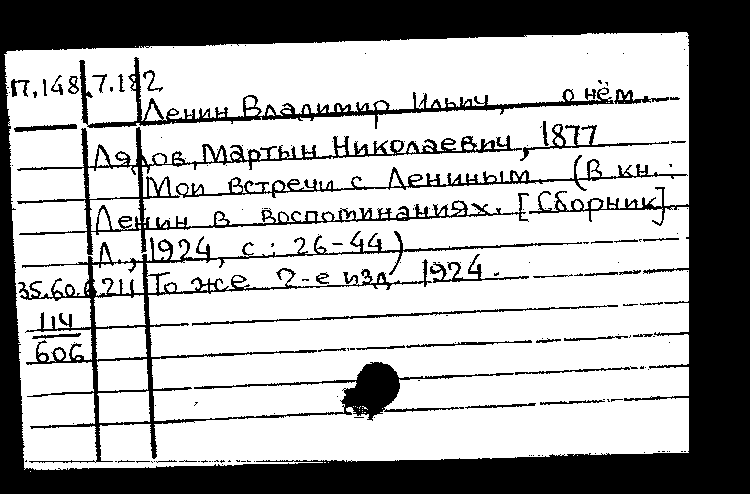 П.148.7.182
Ленин, Владимир Ильич, о нём.
Лядов, Мартын Николаевич, 1877
Мои встречи с Лениным. (В кн.:
Ленин в воспоминаниях. [Сборник]
Л., 1924, с.: 26-44)
35.60.6.211 То же 2-е изд. 1924.
114
606